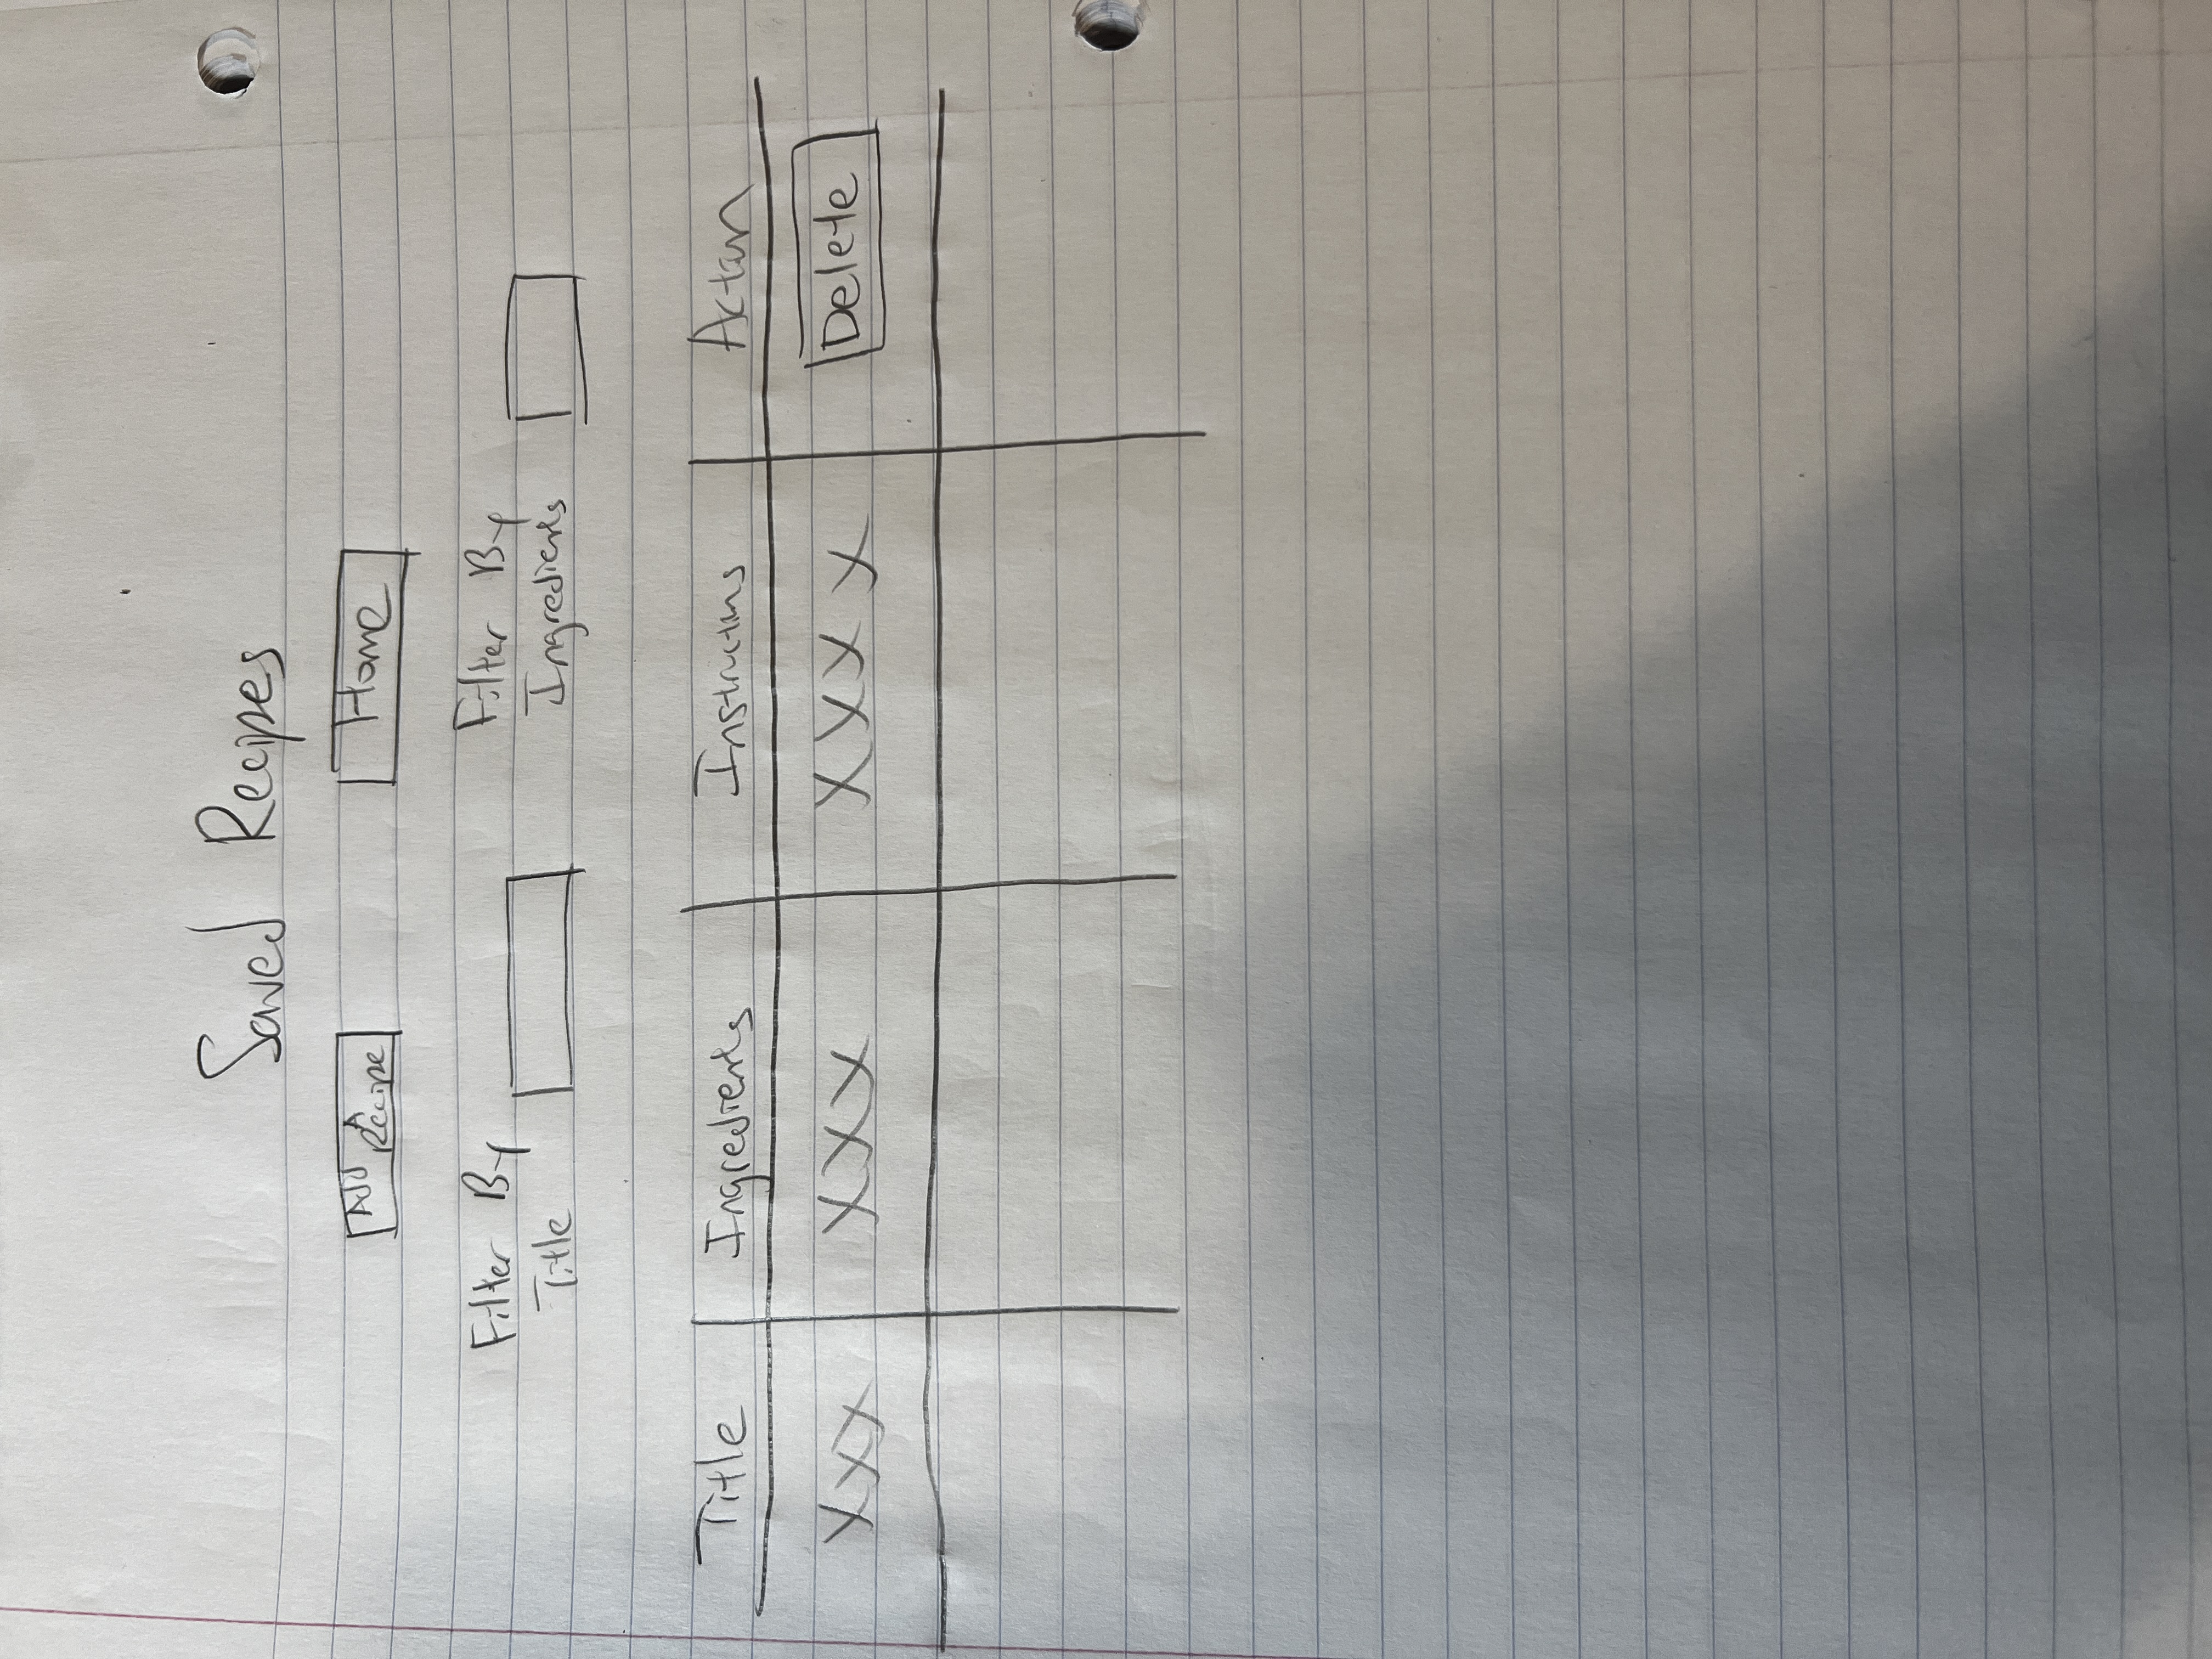 Saved Recipes
Add A
Recipe
Home
Filter By
Title
Filter By
Ingredients
Title Ingredients Instructions Action
XXX XXX XXXX Delete